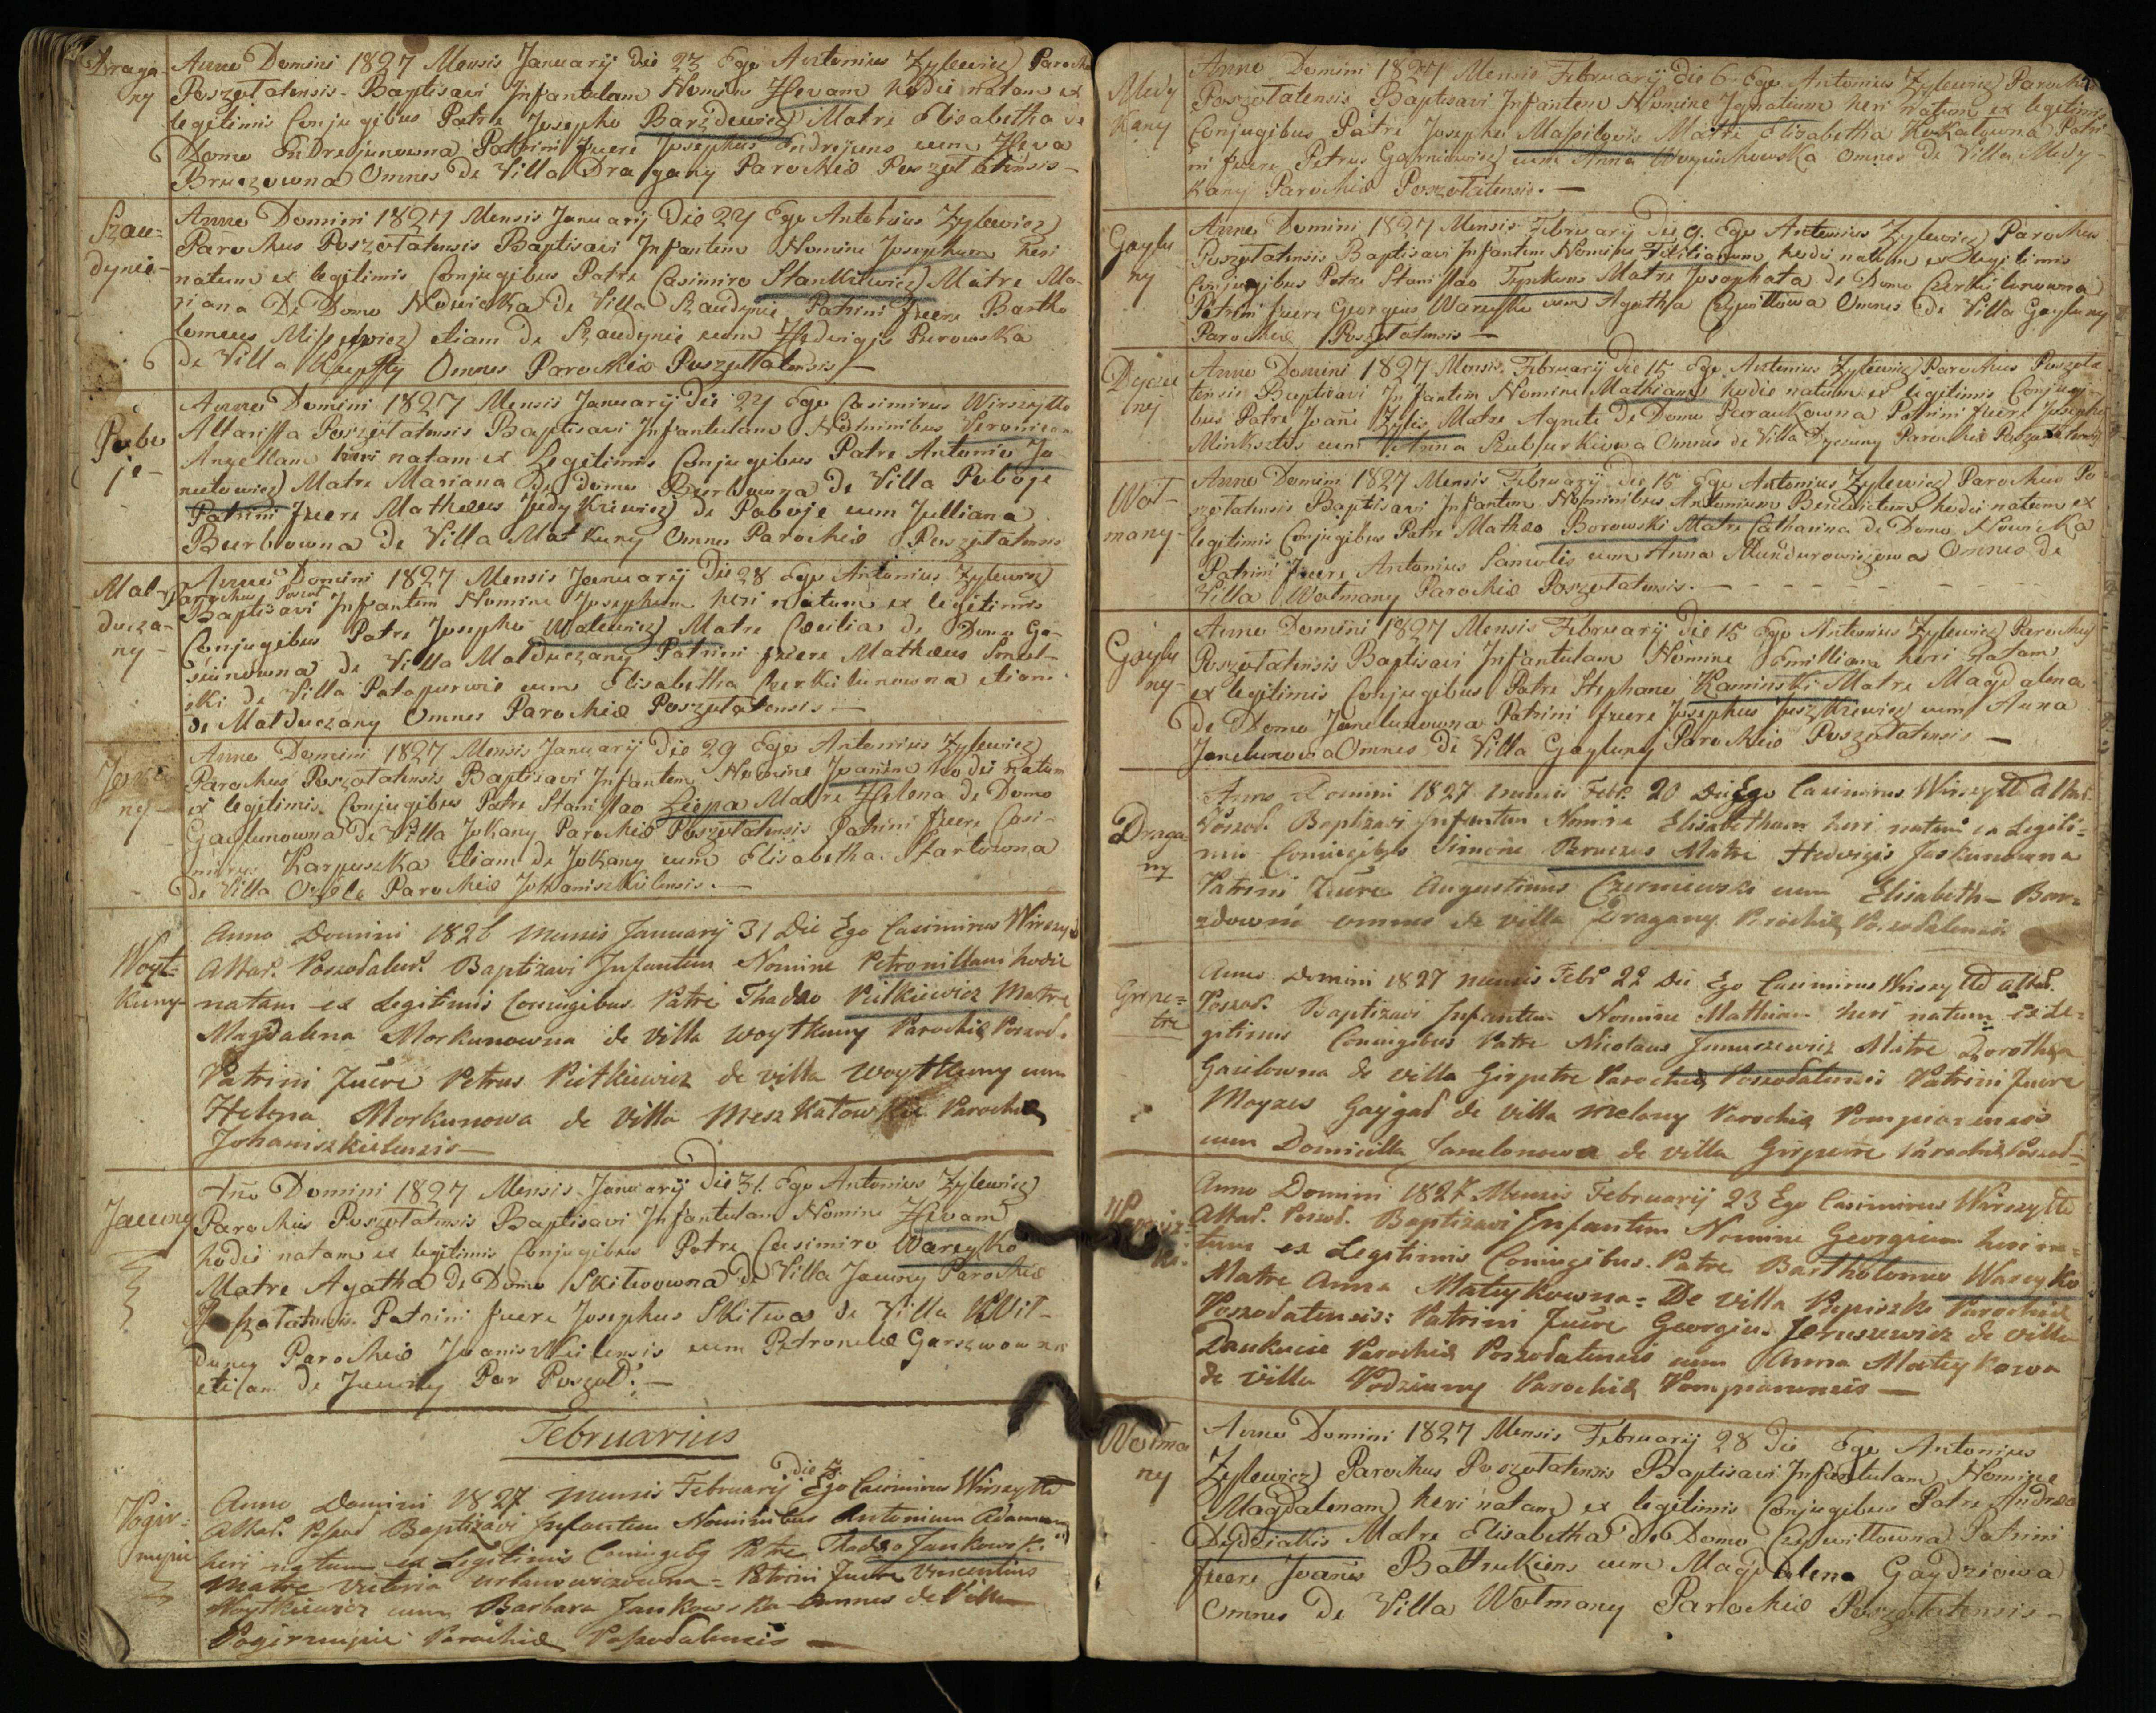 Draga-
ny
Anno Domini 1827 Mensis Januarij Die 23 Ego Antonius Zylewicz Parochus
Poszołatensis Baptisavi Infantulam Nomine Hevam hodie natam ex
legitimis Conjugibus Patre Josepho Barzdewicz Matre Elisabetha de
Domo Endrejunowna Patrini fuere Josephus Endrejuns cum Heva
Bruzowna Omnes de Villa Dragany Parochiæ Poszołatensis
Szau-
dynie
Anno Domini 1827 Mensis Januarij Die 24 Ego Antonius Zylewicz
Parochus Poszołatensis Baptisavi Infantem Nomine Josephum heri
natum ex legitimis Conjugibus Patre Casimiro Stankiewicz Matre Ma-
riana De Domo Nowicka de Villa Szaudynie Patrini fuere Bartho
lomeus etiam de Szaudynie cum Hedvigis Purowska
de Villa Omnes Parochiæ Poszołatensis
Pobo
je
Anno Domini 1827 Mensis Januarij Die 24 Ego Casimirus Wirszyłło
Altarista Poszołatensis Baptisavi Infantulam Nominibus Veronicam
Anyellam heri natam ex Legitimis Conjugibus Patre Antonio Ja-
nutowicz Matre Mariana de domo Burbowna de Villa Poboje
Patrini fuere Matheus Judykiewicz de Poboje cum Julliana
Burbowna de Villa Matkuny Omnes Parochiæ Poszołatensis
Mal-
ducza-
ny
Anno Domini 1827 Mensis Januarij Die 28 Ego Antonius Zylewicz
Parochus Poszoł
Baptisavi Infantem Nomine Josephum heri natum ex legitimis
Conjugibus Patre Josepho Walewicz Matre Cæcilia de Domo Ga-
siunowna de Villa Malduczany Patrini fuere Matheus Smol-
ski de Villa Patapurwie cum Elisabetha etiam
de Malduczany Omnes Parochiæ Poszołatensis
ny
Anno Domini 1827 Mensis Januarij Die 29 Ego Antonius Zylewicz
Parochus Poszołatensis Baptisavi Infantem Nomine Joanem hodie natum
ex legitimis Conjugibus Patre Stanislao Liepa Matre Helena de Domo
Gaylunowna de Villa Jokany Parochiæ Poszołatensis Patrini fuere Casi-
mirus Karpuszka etiam de Jokany cum Elisabetha
de Villa Parochiæ Johaniszkielensis.
Woyt-
kuny
Anno Domini 1826 Mensis Januarij 31 Die Ego Casimirus Wirszyłło
Altar. Poszodaten. Baptizavi Infantem Nomine Petronillam hodie
natam ex Legitimis Coniugibus Patre Thadeo Pietkiewicz Matre
Magdalena Morkunowna de villa Woytkuny Parochiæ Poszod.
Patrini fuere Petrus Pietkiewicz de villa Woytkuny cum
Helena Morkunowa de villa Meszkatowskie Parochiæ
Johaniszkielensis
Jacuny
Ano Domini 1827 Mensis Januarij Die 31. Ego Antonius Zylewicz
Parochus Poszołatensis Baptisavi Infantulam Nomine Hevam
hodie natam ex legitimis Conjugibus Patre Casimiro Wareyko
Matre Agatha de Domo Skitwowna de Villa Jacuny Parochiæ
Poszołatensis Patrini fuere Josephus Skitwa de Villa Wil-
duny Parochiæ Joaniszkielensis cum Petronela
etiam de Jacuny Par Poszoł.
Februarius
Pogir-
mujnie
Anno Domini 1827 Mensis Februarij Die 5 Ego Casimirus Wirszyłło
Altar. Poszod Baptizavi Infantem Nominibus Antonium Adamum
heri natum ex Legitimis Coniugeby Patre Thadeo Jankowski
Matre Victoria Urbanowiczowna = Patrini fuere Vincentius
Woytkiewicz cum Barbara Jankowska omnes de Villa
Parochiæ Poszodatensis
Medy
kany
Anno Domini 1827 Mensis Februarij Die 6 Ego Antonius Zylewicz Parochus
Poszołatensis Baptisavi Infantem Nomine Ignatium heri natum ex legitimis
Conjugibus Patre Josepho Matre Elizabetha Kukalowna Patri-
ni fuere Petrus Garniewicz cum Anna Woyciechowska Omnes de Villa Medy-
kany Parochiæ Poszołatensis.
Gaylu
ny
Anno Domini 1827 Mensis Februarij Die 9. Ego Antonius Zylewicz Parochus
Poszołatensis Baptisavi Infantem Nomine hodie natum ex legitimis
Conjugibus Patre Stanislao Tynkuns Matre Josaphata de Domo
Patrini fuere Georgius Wareyko cum Agatha Omnes de Villa Gayluny
Parochiæ Poszołatensis
Dyciu
ny
Anno Domini 1827 Mensis Februarij Die 15 Ego Antonius Zylewicz Parochus Poszoła
tensis Baptisavi Infantem Nomine Mathiam hodie natum ex legitimis Conjugi-
bus Patre Joane Zylis Matre Agnete de Domo Paraukowna Patrini fuere Josephus
Minksztos cum Anna Omnes de Villa Dyciuny Parochiæ Poszołatensis
Wol-
many
Anno Domini 1827 Mensis Februarij Die 15 Ego Antonius Zylewicz Parochus Po
szołatensis Baptisavi Infantem Nominibus Antonium Benedictum hodie natum ex
legitimis Conjugibus Patre Matheo Borowski Matre Catharina de Domo Nowicka
Patrini fuere Antonius Samolis cum Anna Mundurowiczowa Omnes de
Villa Wolmany Parochiæ Poszołatensis.
Gaylu
ny
Anno Domini 1827 Mensis Februarij Die 15 Ego Antonius Zylewicz Parochus
Poszołatensis Baptisavi Infantulam Nomine Emilliana heri natam
ex legitimis Conjugibus Patre Stephano Kaminski Matre Magdalena
De Domo Janelunowna Patrini fuere Josephus Juszkiewicz cum Anna
Janelunowa Omnes de Villa Gayluny Parochiæ Poszołatensis
Draga
ny
Anno Domini 1827 Mensis Febr. 20 Die Ego Casimirus Wirszyłło Altar.
Poszod. Baptizavi Infantem Nomine Elisabetham heri natam ex Legiti=
mis Coniugibus Simone Bruzus Matre Hedvigis Jaskunowna
Patrini fuere Augustinus Czerniewski cum Elisabeth Bar=
zdowna omnes de villa Dragany Parochiæ Poszodatensis
Girpe=
tre
Anno Domini 1827 Mensis Febr 22 Die Ego Casimirus Wirszyłło Altar.
Poszod. Baptizavi Infantem Nomine Mathiam heri natum ex Le=
gitimis Coniugibus Patre Nicolaus Januszewicz Matre Dorothea
Gailowna de villa Girpetre Parochiæ Poszodatensis Patrini fuere
Moyzes Gaygał de villa Parochiæ Pompianensis
cum Domicilla Janelonowa de villa Girpetre Parochiæ Poszod
Anno Domini 1827 Mensis Februarij 23 Ego Casimirus Wirszyłło
Altar. Poszod. Baptizavi Infantem Nomine Georgium heri na=
tum ex Legitimis Coniugibus Patre Bartholomeo Wareyko
Matre Anna Mateykowna = De villa Popiszki Parochiæ
Poszodatensis: Patrini fuere Georgius Jaruszewicz de villa
Daukucie Parochiæ Poszodatensis cum Anna Mateykowa
de villa Podziuny Parochiæ Pompianensis
Wolma
ny
Anno Domini 1827 Mensis Februarij 28 Die Ego Antonius
Zylewicz Parochus Poszołatensis Baptisavi Infantulam Nomine
Magdalenam heri natam ex legitimis Conjugibus Patre Andrea
Dydziakis Matre Elisabetha de Domo Patrini
fuere Joanes Bottrukiens cum Magdalena Gaydziowa
Omnes de Villa Wolmany Parochiæ Poszołatensis